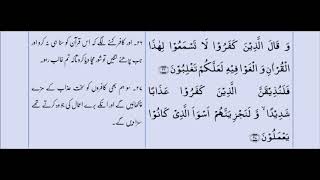 وَ قَالَ الَّذِیۡنَ کَفَرُوۡا لَا تَسۡمَعُوۡا لِہٰذَا
الۡقُرۡاٰنِ وَ الۡغَوۡا فِیۡہِ لَعَلَّکُمۡ تَغۡلِبُوۡنَ ﴿۲۶﴾
فَلَنُذِیۡقَنَّ الَّذِیۡنَ کَفَرُوۡا عَذَابًا
شَدِیۡدًا ۙ وَّ لَنَجۡزِیَنَّہُمۡ اَسۡوَاَ الَّذِیۡ کَانُوۡا
یَعۡمَلُوۡنَ ﴿۲۷﴾
۲۶۔ اور کافر کہنے لگے کہ اس قرآن کو سنا ہی نہ کرو اور
جب پڑھنے لگیں تو شور مچا دیا کرو تاکہ تم غالب رہو۔
۲۷۔ سو ہم بھی کافروں کو سخت عذاب کے مزے
چکھائیں گے اور انکے برے اعمال کی جو وہ کرتے تھے
سزا دیں گے۔